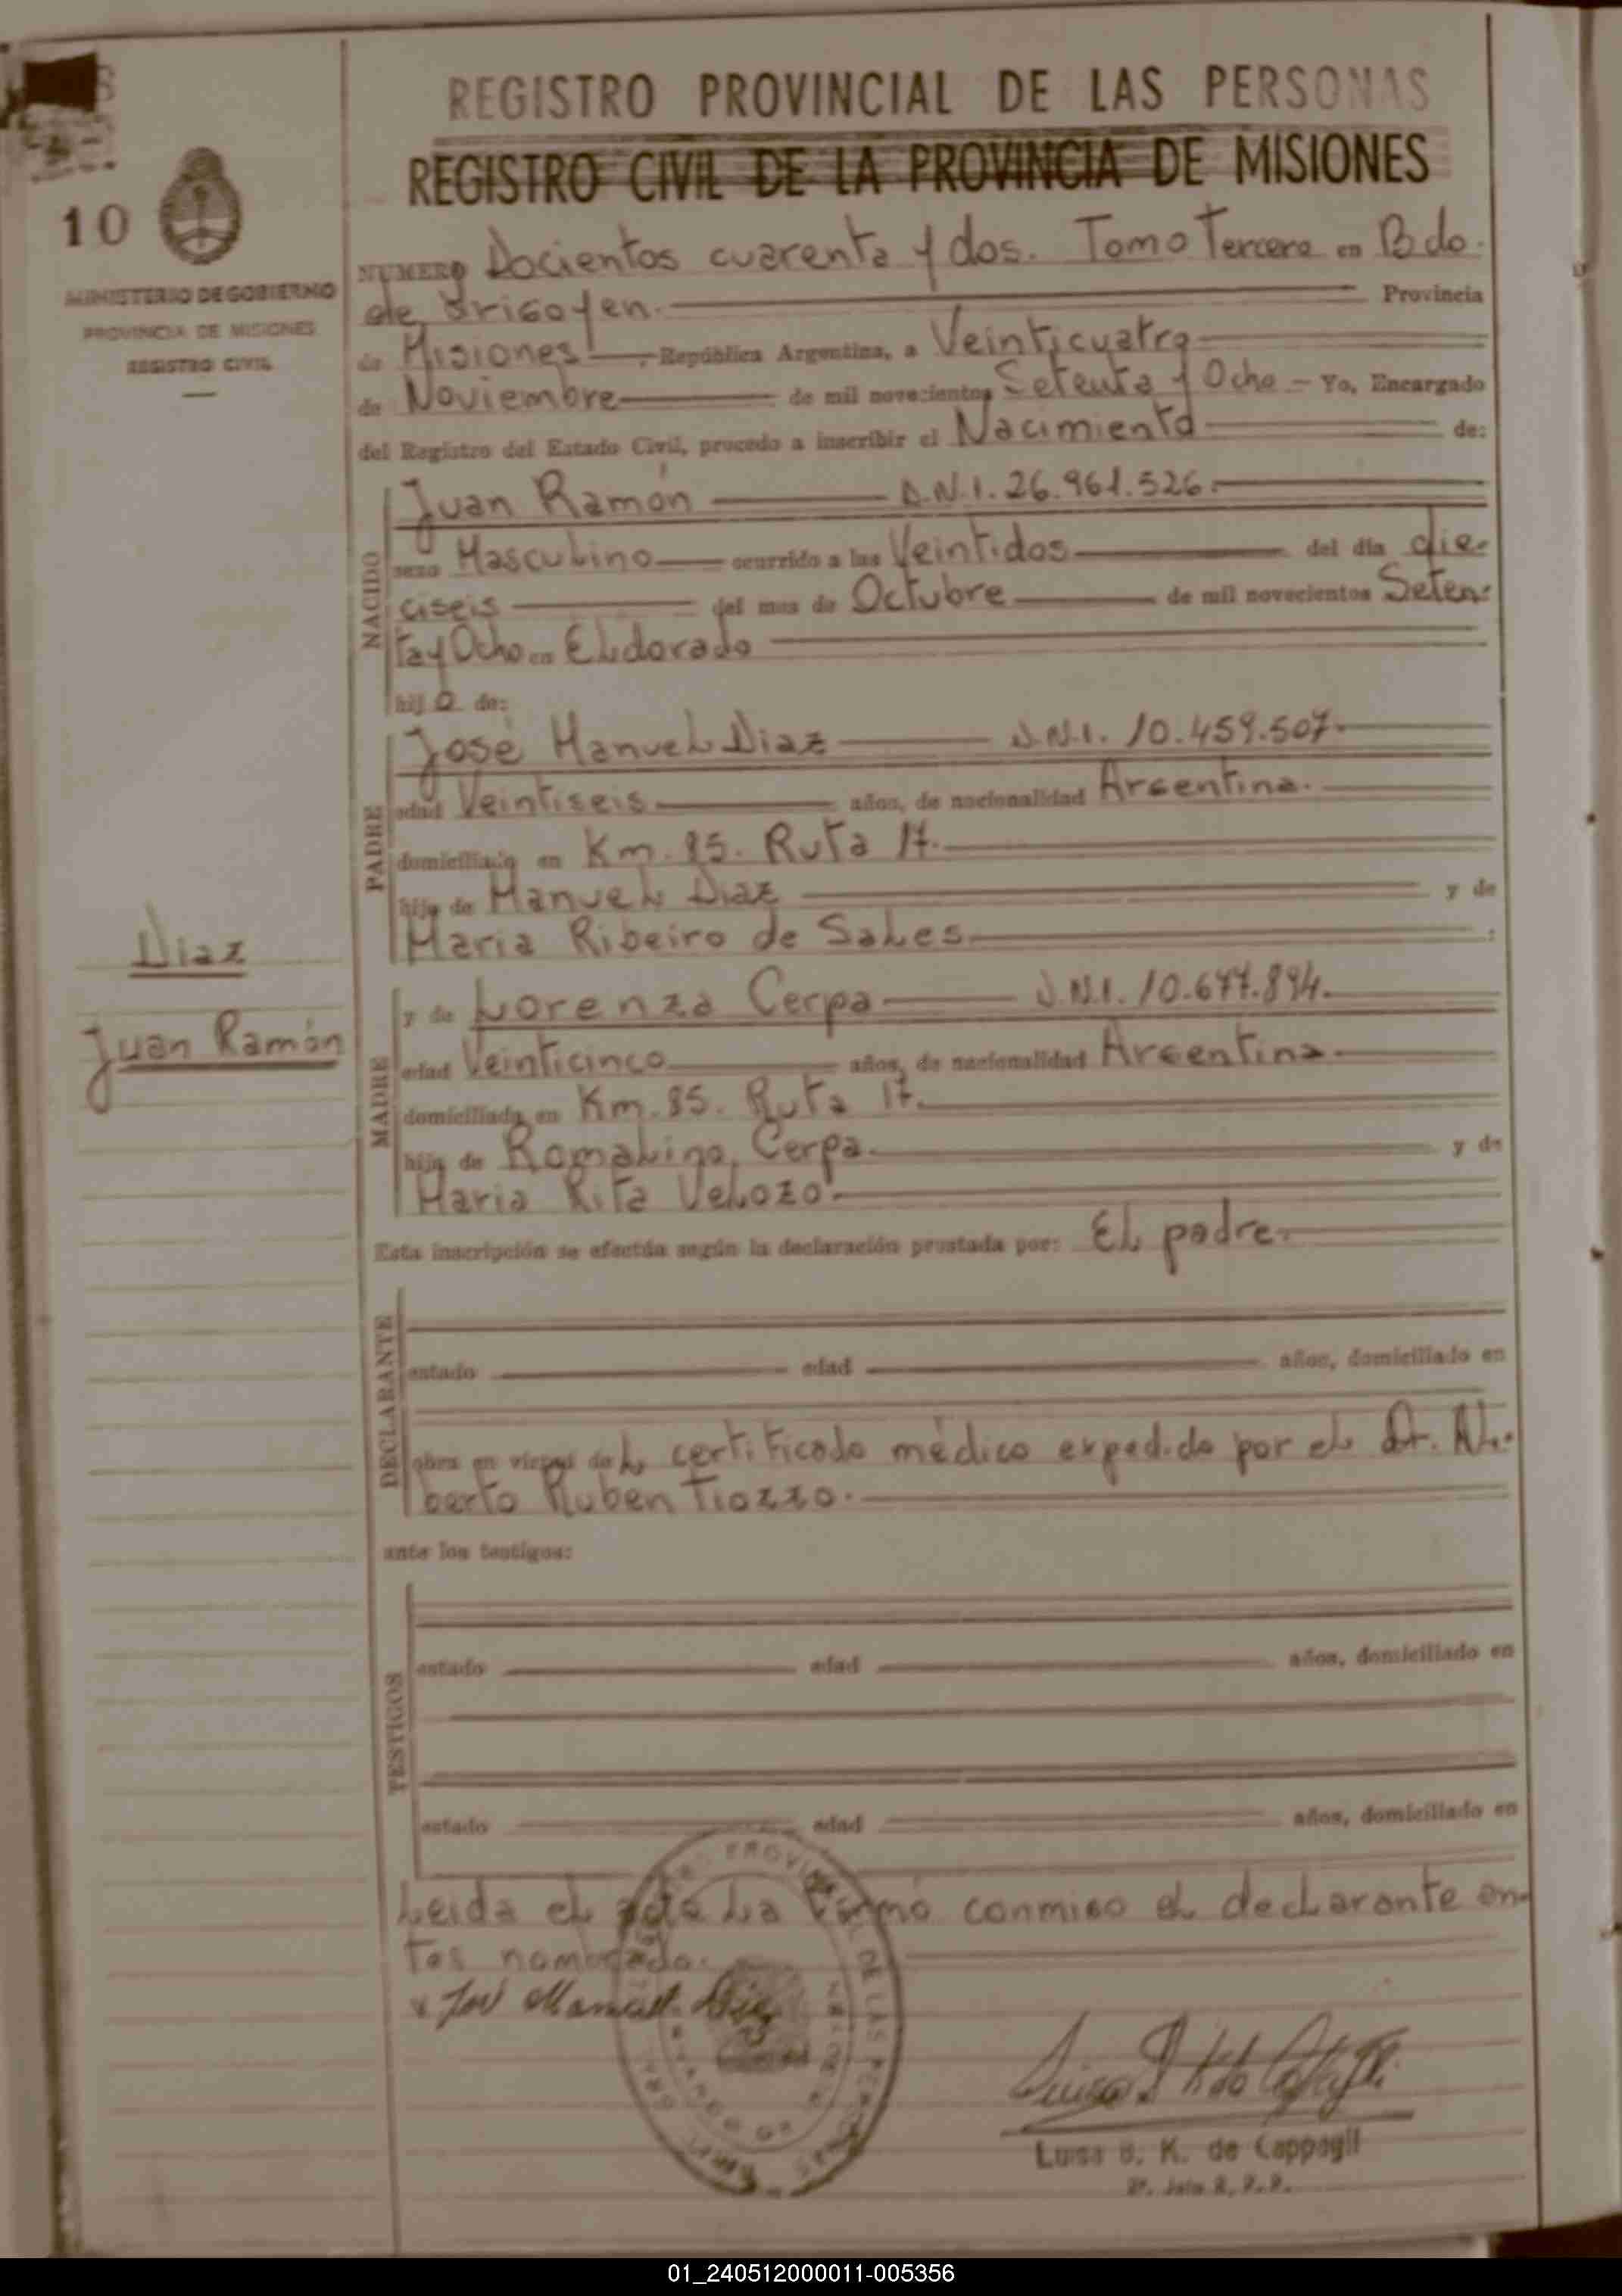 REGISTRO PROVINCIAL DE LAS PERSONAS
REGISTRO CIVIL DE LA PROVINCIA DE MISIONES
10
MINISTERIO DE GOBIERNO
PROVINCIA DE MISIONES
REGISTRO CIVIL
NUMERO Docientos cuarenta y dos. Tomo Tercero en Bdo.
de Irigoyen. Provincia
de Misiones, República Argentina, a Veinticuatro
de Noviembre de mil novecientos Setenta y Ocho - Yo, Encargado
del Registro del Estado Civil, procedo a inscribir el Nacimiento de:
NACIDO
Juan Ramón D.N.I. 26.961.526.
sexo Masculino ocurrido a las Veintidos del día die-
ciseis del mes de Octubre de mil novecientos Seten-
ta y Ocho en Eldorado
hijo de:
PADRE
José Manuel Diaz D.N.I. 10.459.507.
edad Veintiseis años, de nacionalidad Argentina.
domiciliado en Km. 85. Ruta 17.
hijo de Manuel Diaz y de
Maria Ribeiro de Sales
Diaz
Juan Ramón
MADRE
y de Lorenza Cerpa D.N.I. 10.677.894.
edad Veinticinco años, de nacionalidad Argentina.
domiciliada en Km. 85. Ruta 17.
hija de Romalino Cerpa. y de
Maria Rita Velozo.
Esta inscripción se efectúa según la declaración prestada por: El padre.
DECLARANTE
estado edad años, domiciliado en
obra en virtud del certificado médico expedido por el Dr. Al-
berto Ruben Tiozzo.
ante los testigos:
TESTIGOS
estado edad años, domiciliado en
estado edad años, domiciliado en
Leida el acta La firmó conmigo el declarante an-
tes nombrado.
José Manuel Diaz
PROVINCIAL DE LAS PERSONAS
Luisa K. de Cappagli
01_240512000011-005356